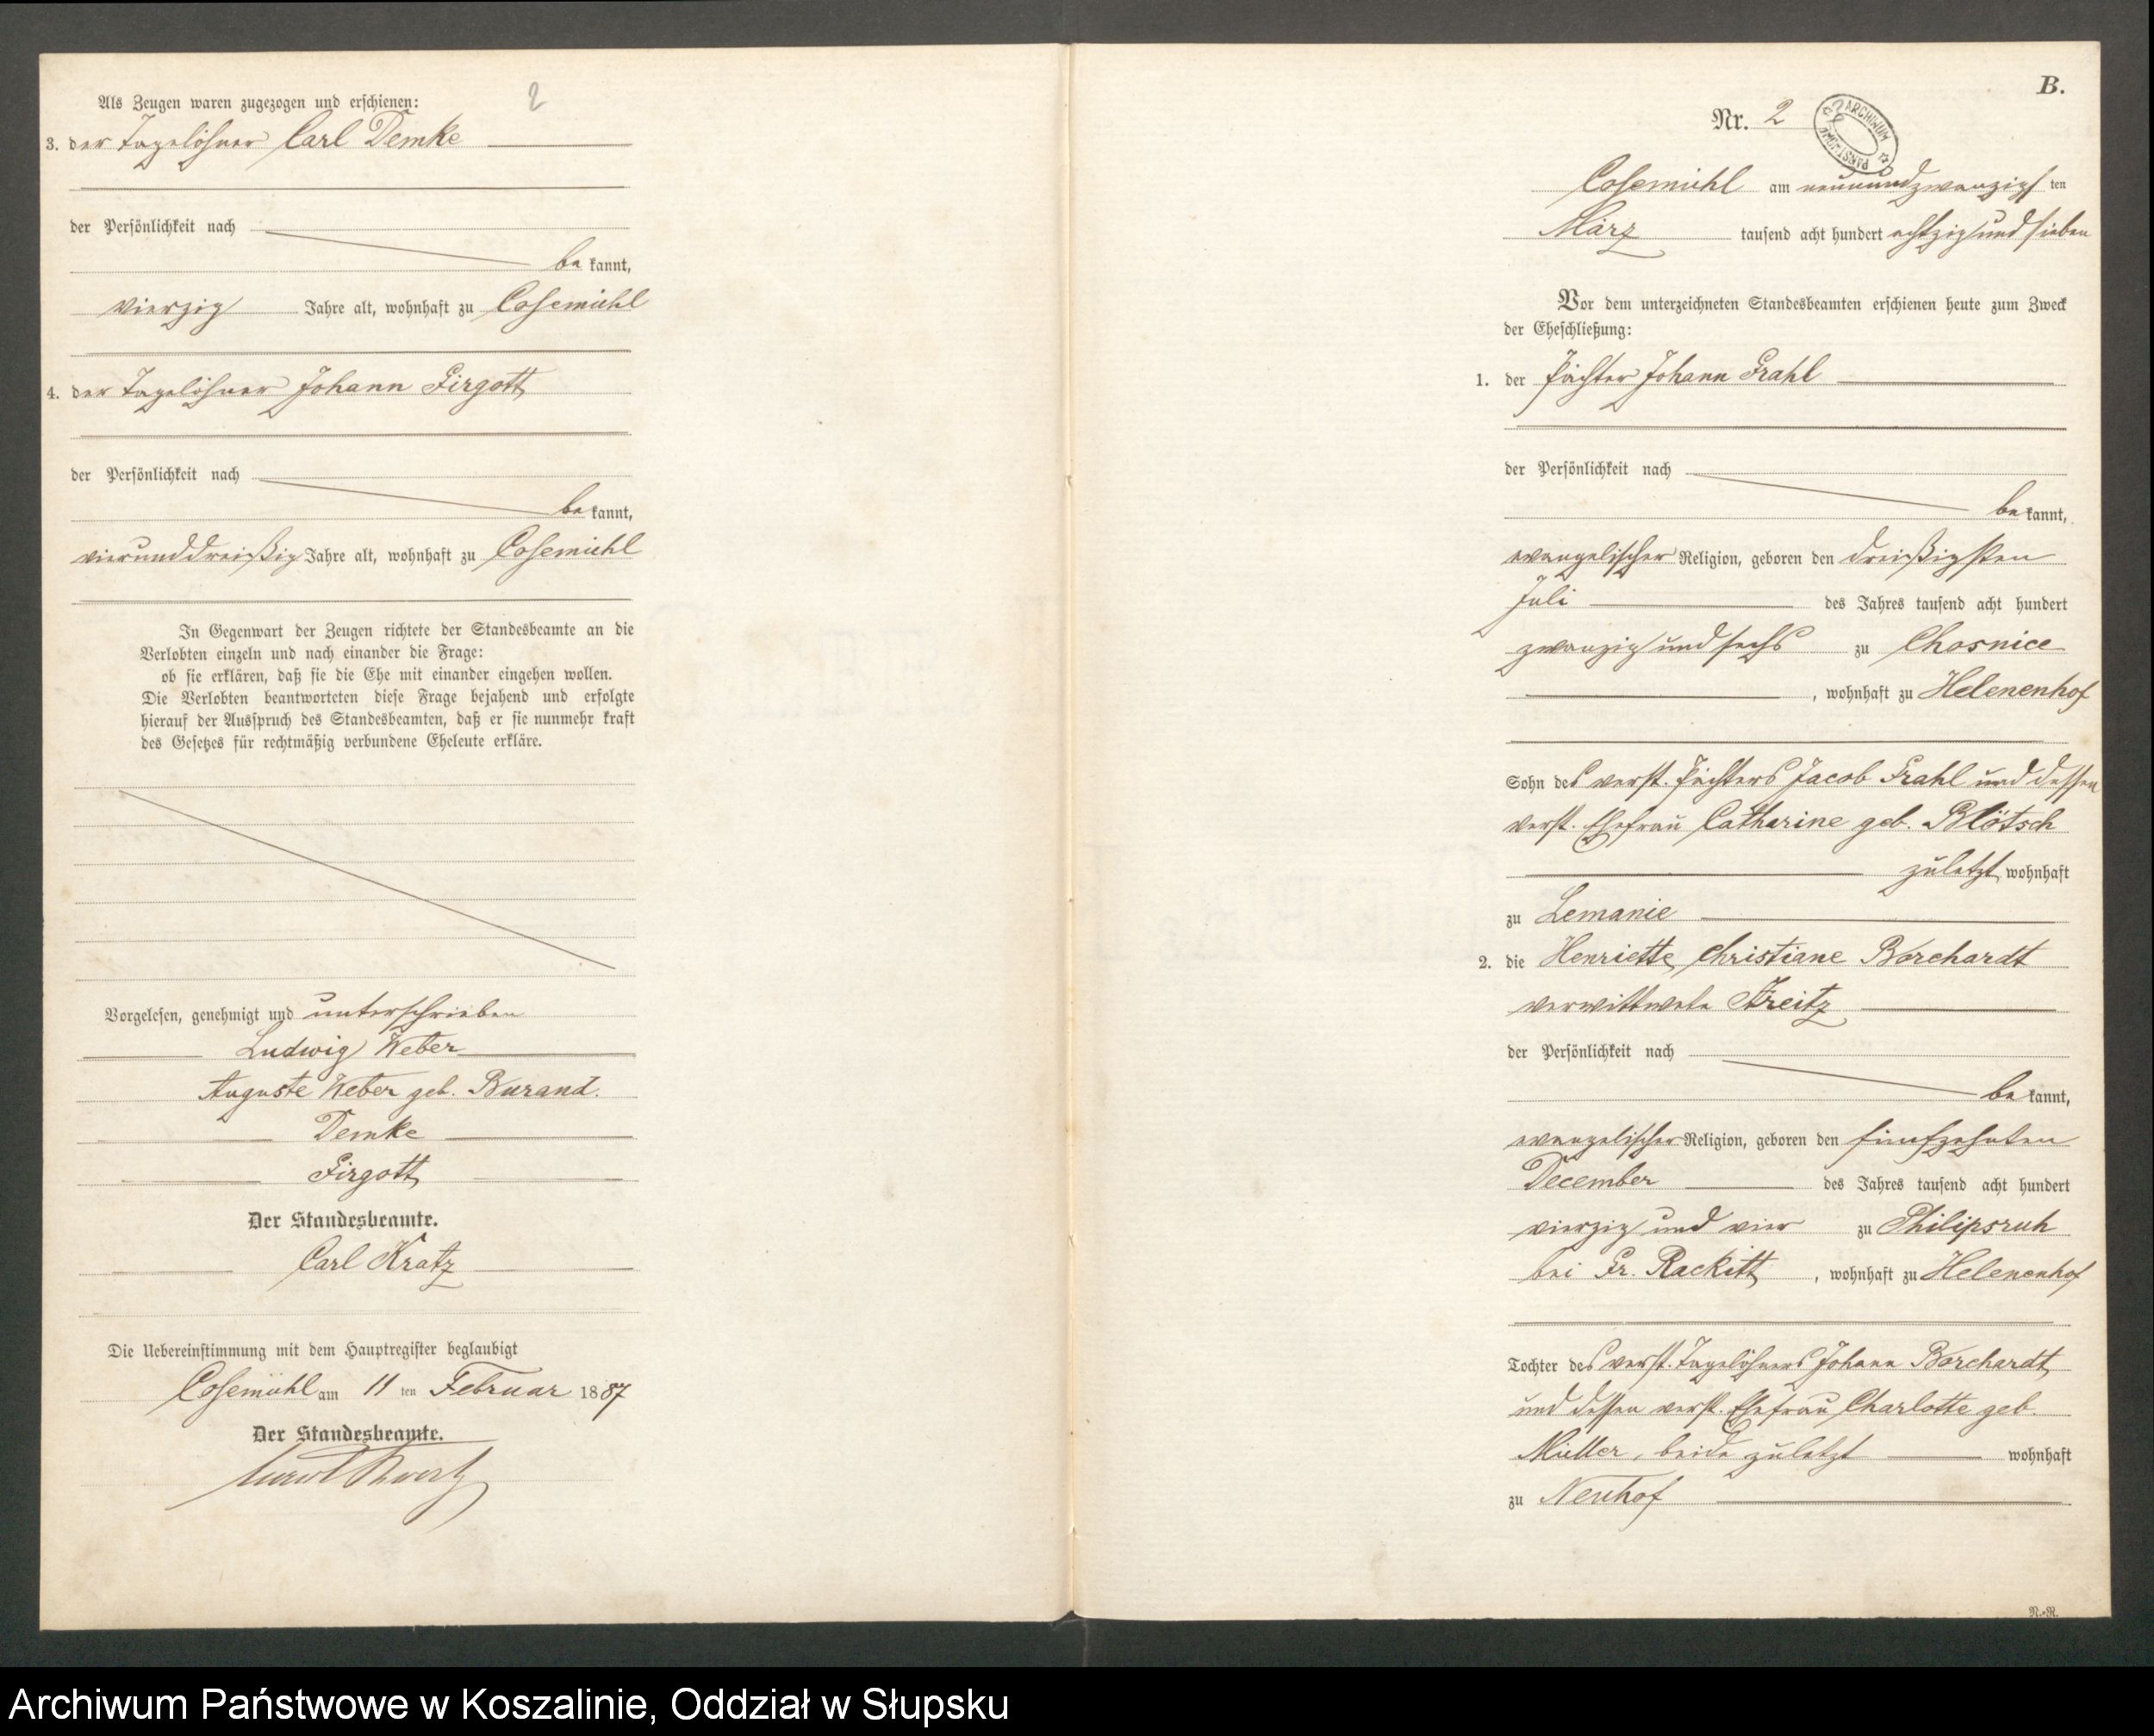 2
Als Zeugen waren zugezogen und erschienen:
3. der Tagelöhner Carl Demke
der Persönlichkeit nach
be kannt,
vierzig Jahre alt, wohnhaft zu Cosemühl
4. der Tagelöhner Johann Firgott
der Persönlichkeit nach
be kannt,
vierunddreißig Jahre alt, wohnhaft zu Cosemühl
In Gegenwart der Zeugen richtete der Standesbeamte an die
Verlobten einzeln und nach einander die Frage:
ob sie erklären, daß sie die Ehe mit einander eingehen wollen.
Die Verlobten beantworteten diese Frage bejahend und erfolgte
hierauf der Ausspruch des Standesbeamten, daß er sie nunmehr kraft
des Gesetzes für rechtmäßig verbundene Eheleute erkläre.
Vorgelesen, genehmigt und unterschrieben
Ludwig Weber
Auguste Weber geb. Burand.
Demke
Firgott
Der Standesbeamte.
Carl Kratz
Die Uebereinstimmung mit dem Hauptregister beglaubigt
Cosemühl am 11 ten Februar 1887
Der Standesbeamte.
B.
Nr. 2
ARCHIWUM PAŃSTWOWE
Cosemühl am neunundzwanzigsten
März tausend acht hundert achtzig und sieben
Vor dem unterzeichneten Standesbeamten erschienen heute zum Zweck
der Eheschließung:
1. der Pächter Johann Frahl
der Persönlichkeit nach
be kannt,
evangelischer Religion, geboren den dreißigsten
Juli des Jahres tausend acht hundert
zwanzig und sechs zu Chosnice
, wohnhaft zu Helenenhof
Sohn des verst. Pächters Jacob Frahl und dessen
verst. Ehefrau Catharine geb. Blötsch
zuletzt wohnhaft
zu Lemanie
2. die Henriette Christiane Borchardt
verwittwete Kreitz
der Persönlichkeit nach
be kannt,
evangelischer Religion, geboren den fünfzehnten
December des Jahres tausend acht hundert
vierzig und vier zu Philipsruh
bei Gr. Rackitt, wohnhaft zu Helenenhof
Tochter des verst. Tagelöhners Johann Borchardt
und dessen verst. Ehefrau Charlotte geb.
Müller, beide zuletzt wohnhaft
zu Neuhof
N.-R.
Archiwum Państwowe w Koszalinie, Oddział w Słupsku